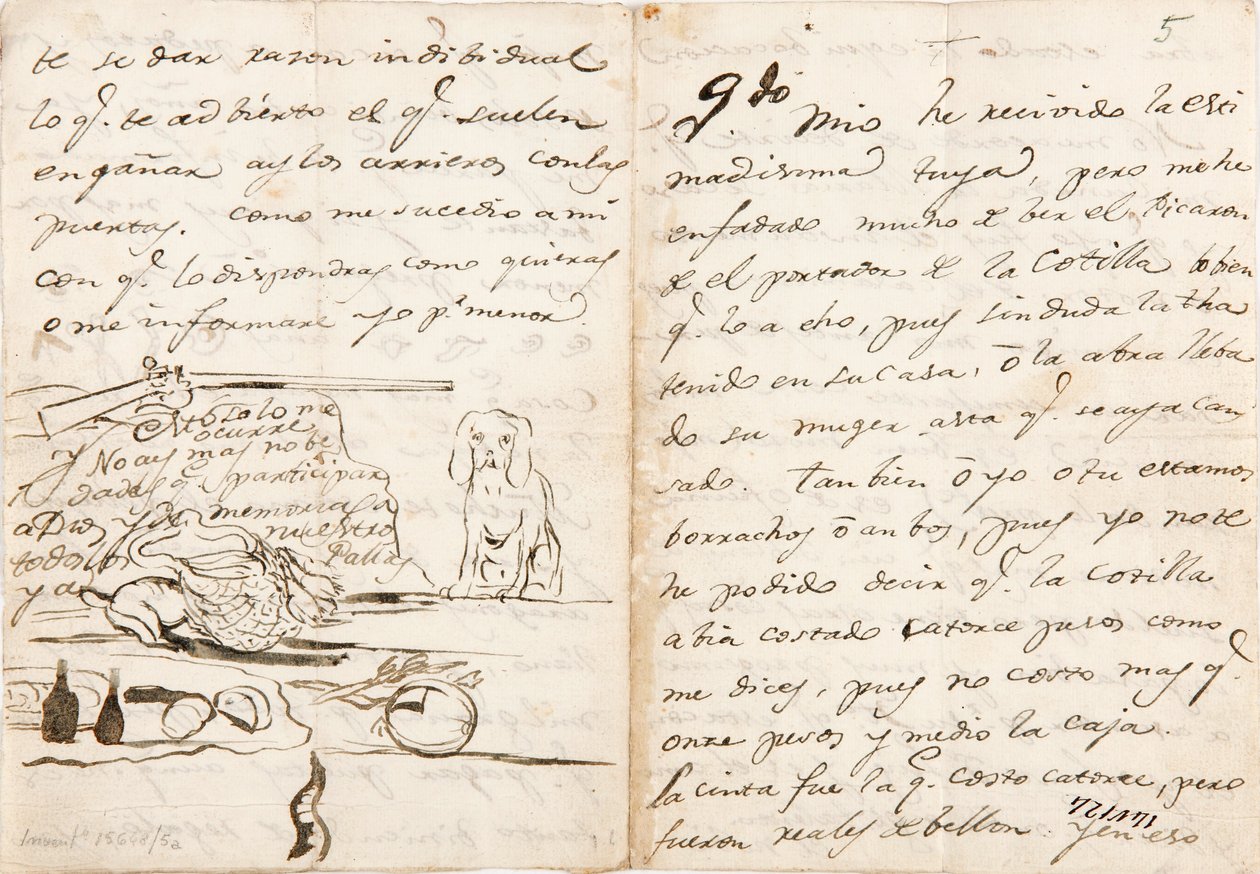 te se dar razon indibidual
lo q.e te adbierto el q.e suelen
engañar ay los arrieros con las
puertas. como me sucedio a mi
con q.e lo dispondras como quieras
o me informare yo p.r menor.
Esto solo me
ocurre
y No ay mas nobe
dades q.e participar
a Dios y de memorias a
todos los nuestro
y a Pallas
Invent.o 15648/5a
5
+
Q.do Mio he recivido la esti
madisima tuya, pero me he
enfadado mucho de ber el Picaron
de el portador de la Cotilla lo bien
q.e lo a eho, pues sin duda la tha
tenido en su casa, ō la abra lleba
do su muger asta q.e se aya can
sado. Tanbien ō yo o tu estamos
borrachos ō anbos, pues yo no te
he podido decir q.e la cotilla
abia costado catorce pesos como
me dices, pues no costo mas q.e
once pesos y medio la caja.
la cinta fue la q.e costo catorce, pero
fueron reales de bellon. y en eso